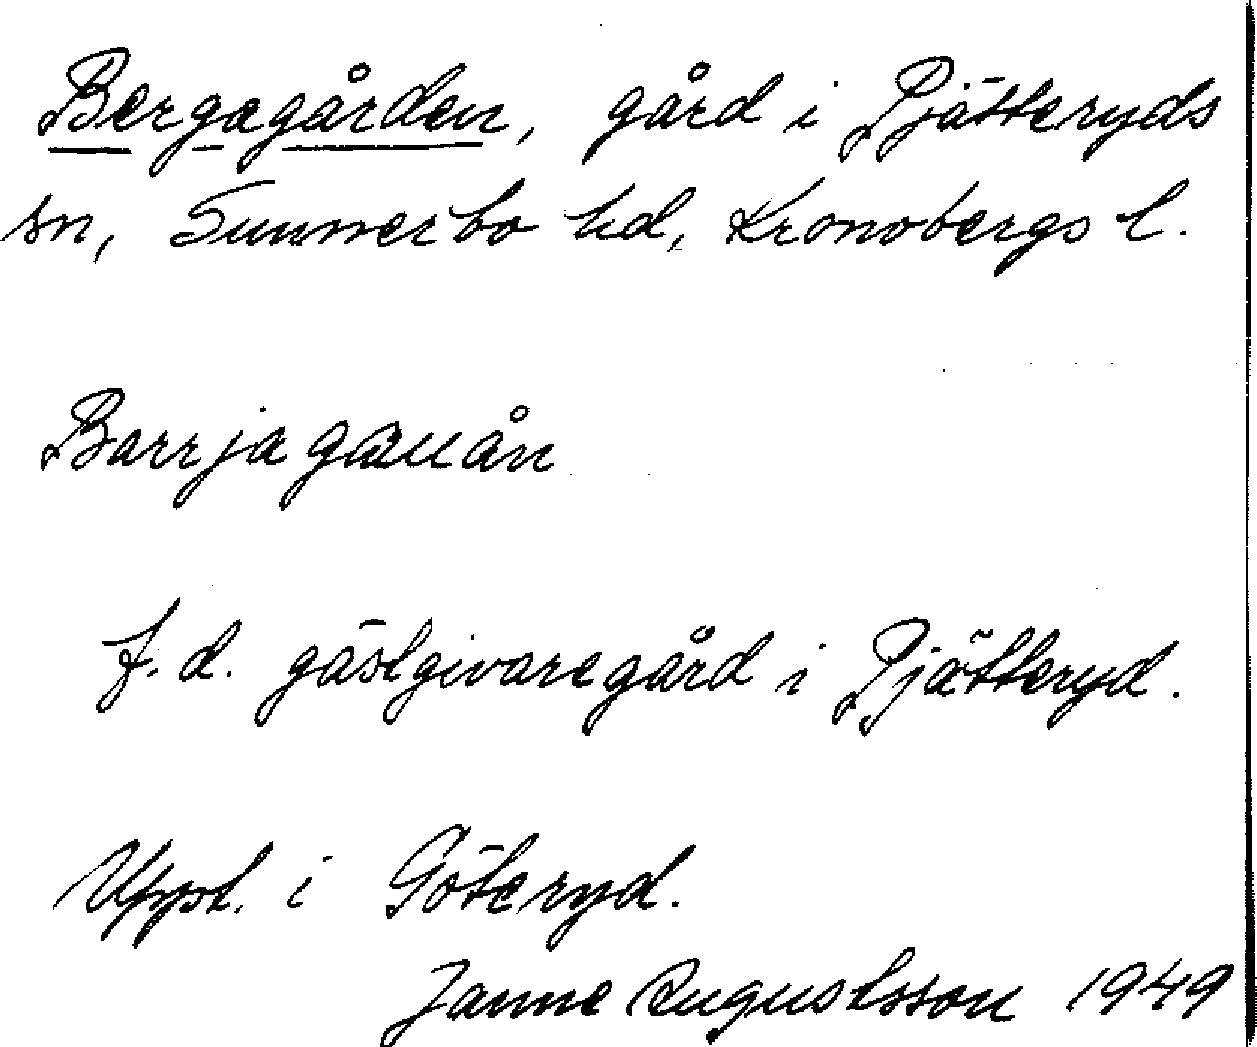 Bergagården, gård i Pjätteryds
sn, Sunnerbo hd, Kronobergs l.
Barrjagauån
f.d. gästgivaregård i Pjätteryd.
Uppt. i Göteryd.
Janne Augustsson 1949